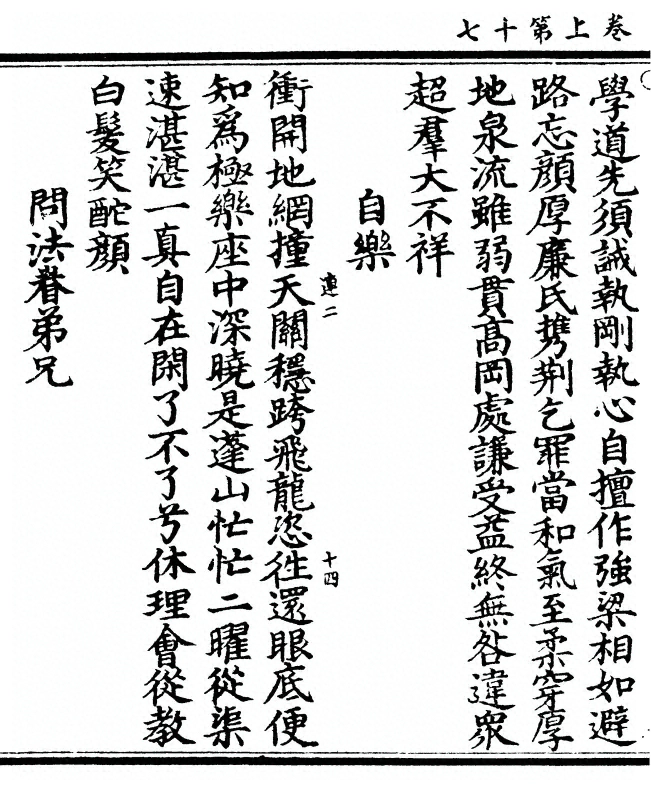 卷上第十七
學道先須誠執剛執心自擅作強梁相如避
路忘顏厚廉氏携荆乞罪當和氣至柔穿厚
地泉流雖弱貫高岡處謙受益終無咎違衆
超羣大不祥
自樂
衝開地網撞天關穩跨飛龍恣徃還眼底便
連二
十四
知爲極樂座中深曉是蓬山忙忙二曜從渠
速湛湛一真自在閑了不了兮休理會從教
白髮笑酡顏
問法眷弟兄